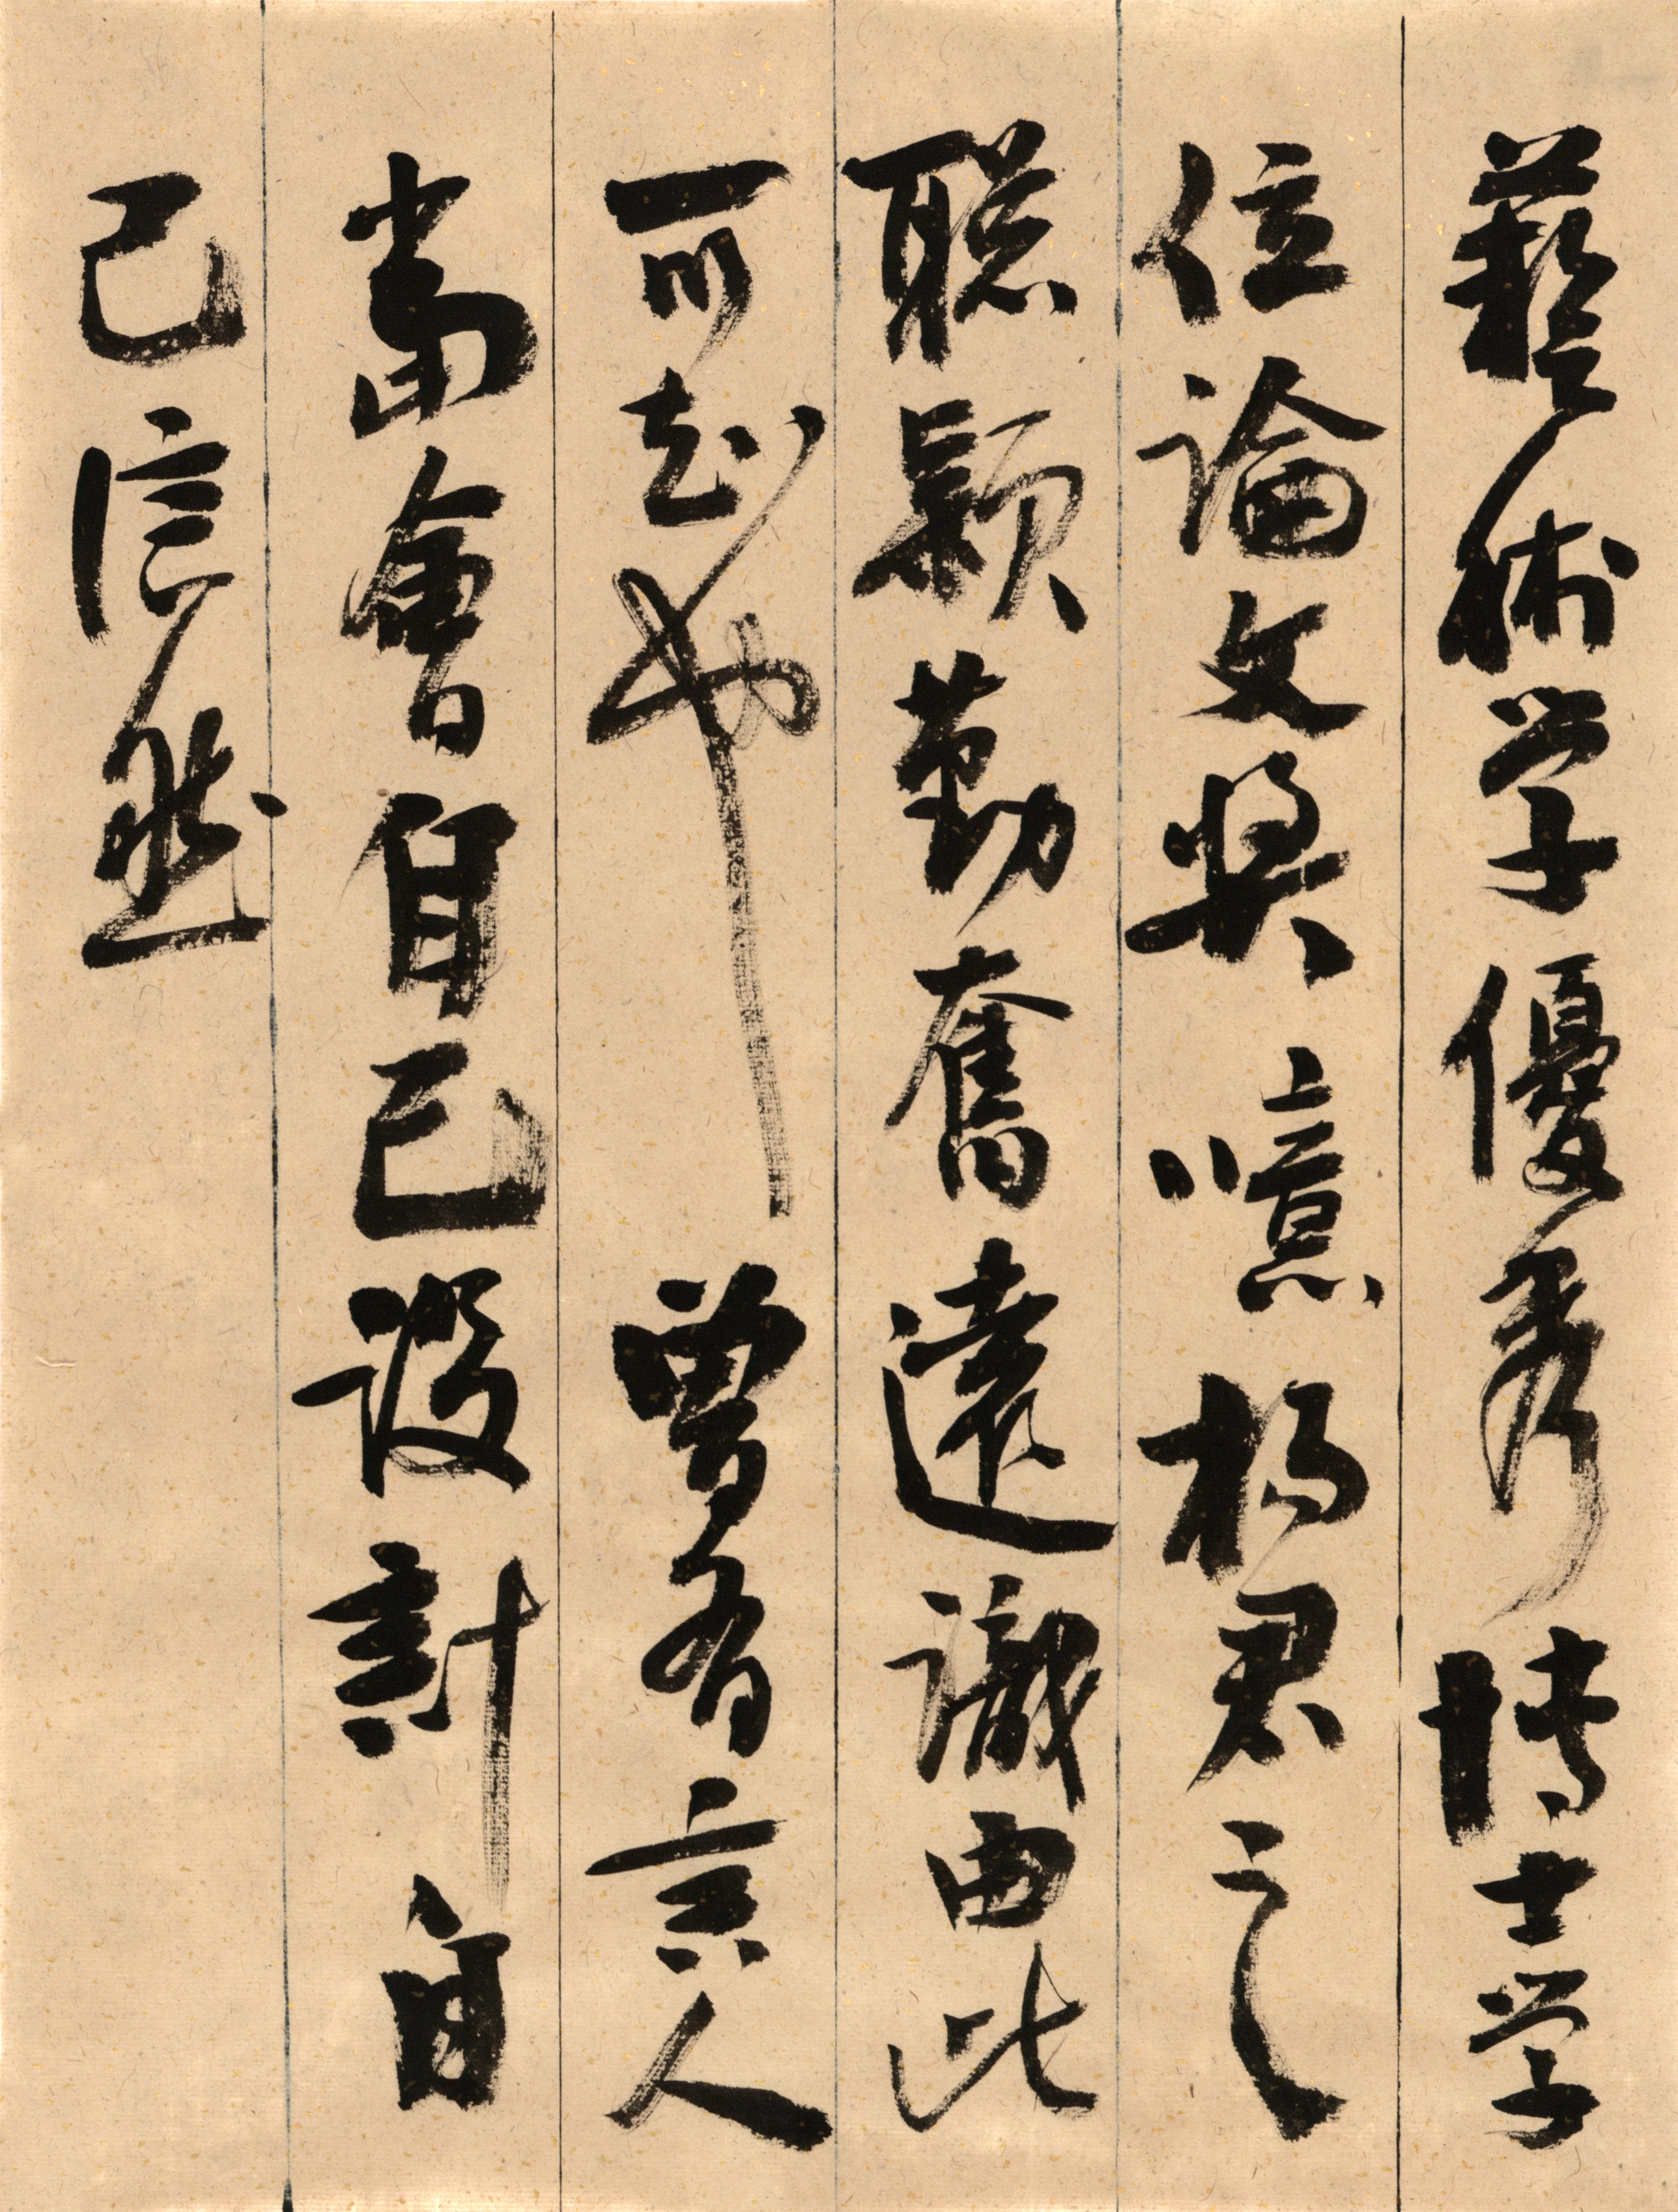 藝術学優秀博士学
位論文奖噫楊君之
聡穎勤奮遠識由此
可知也曾有言人
當會自己設計自
己信然